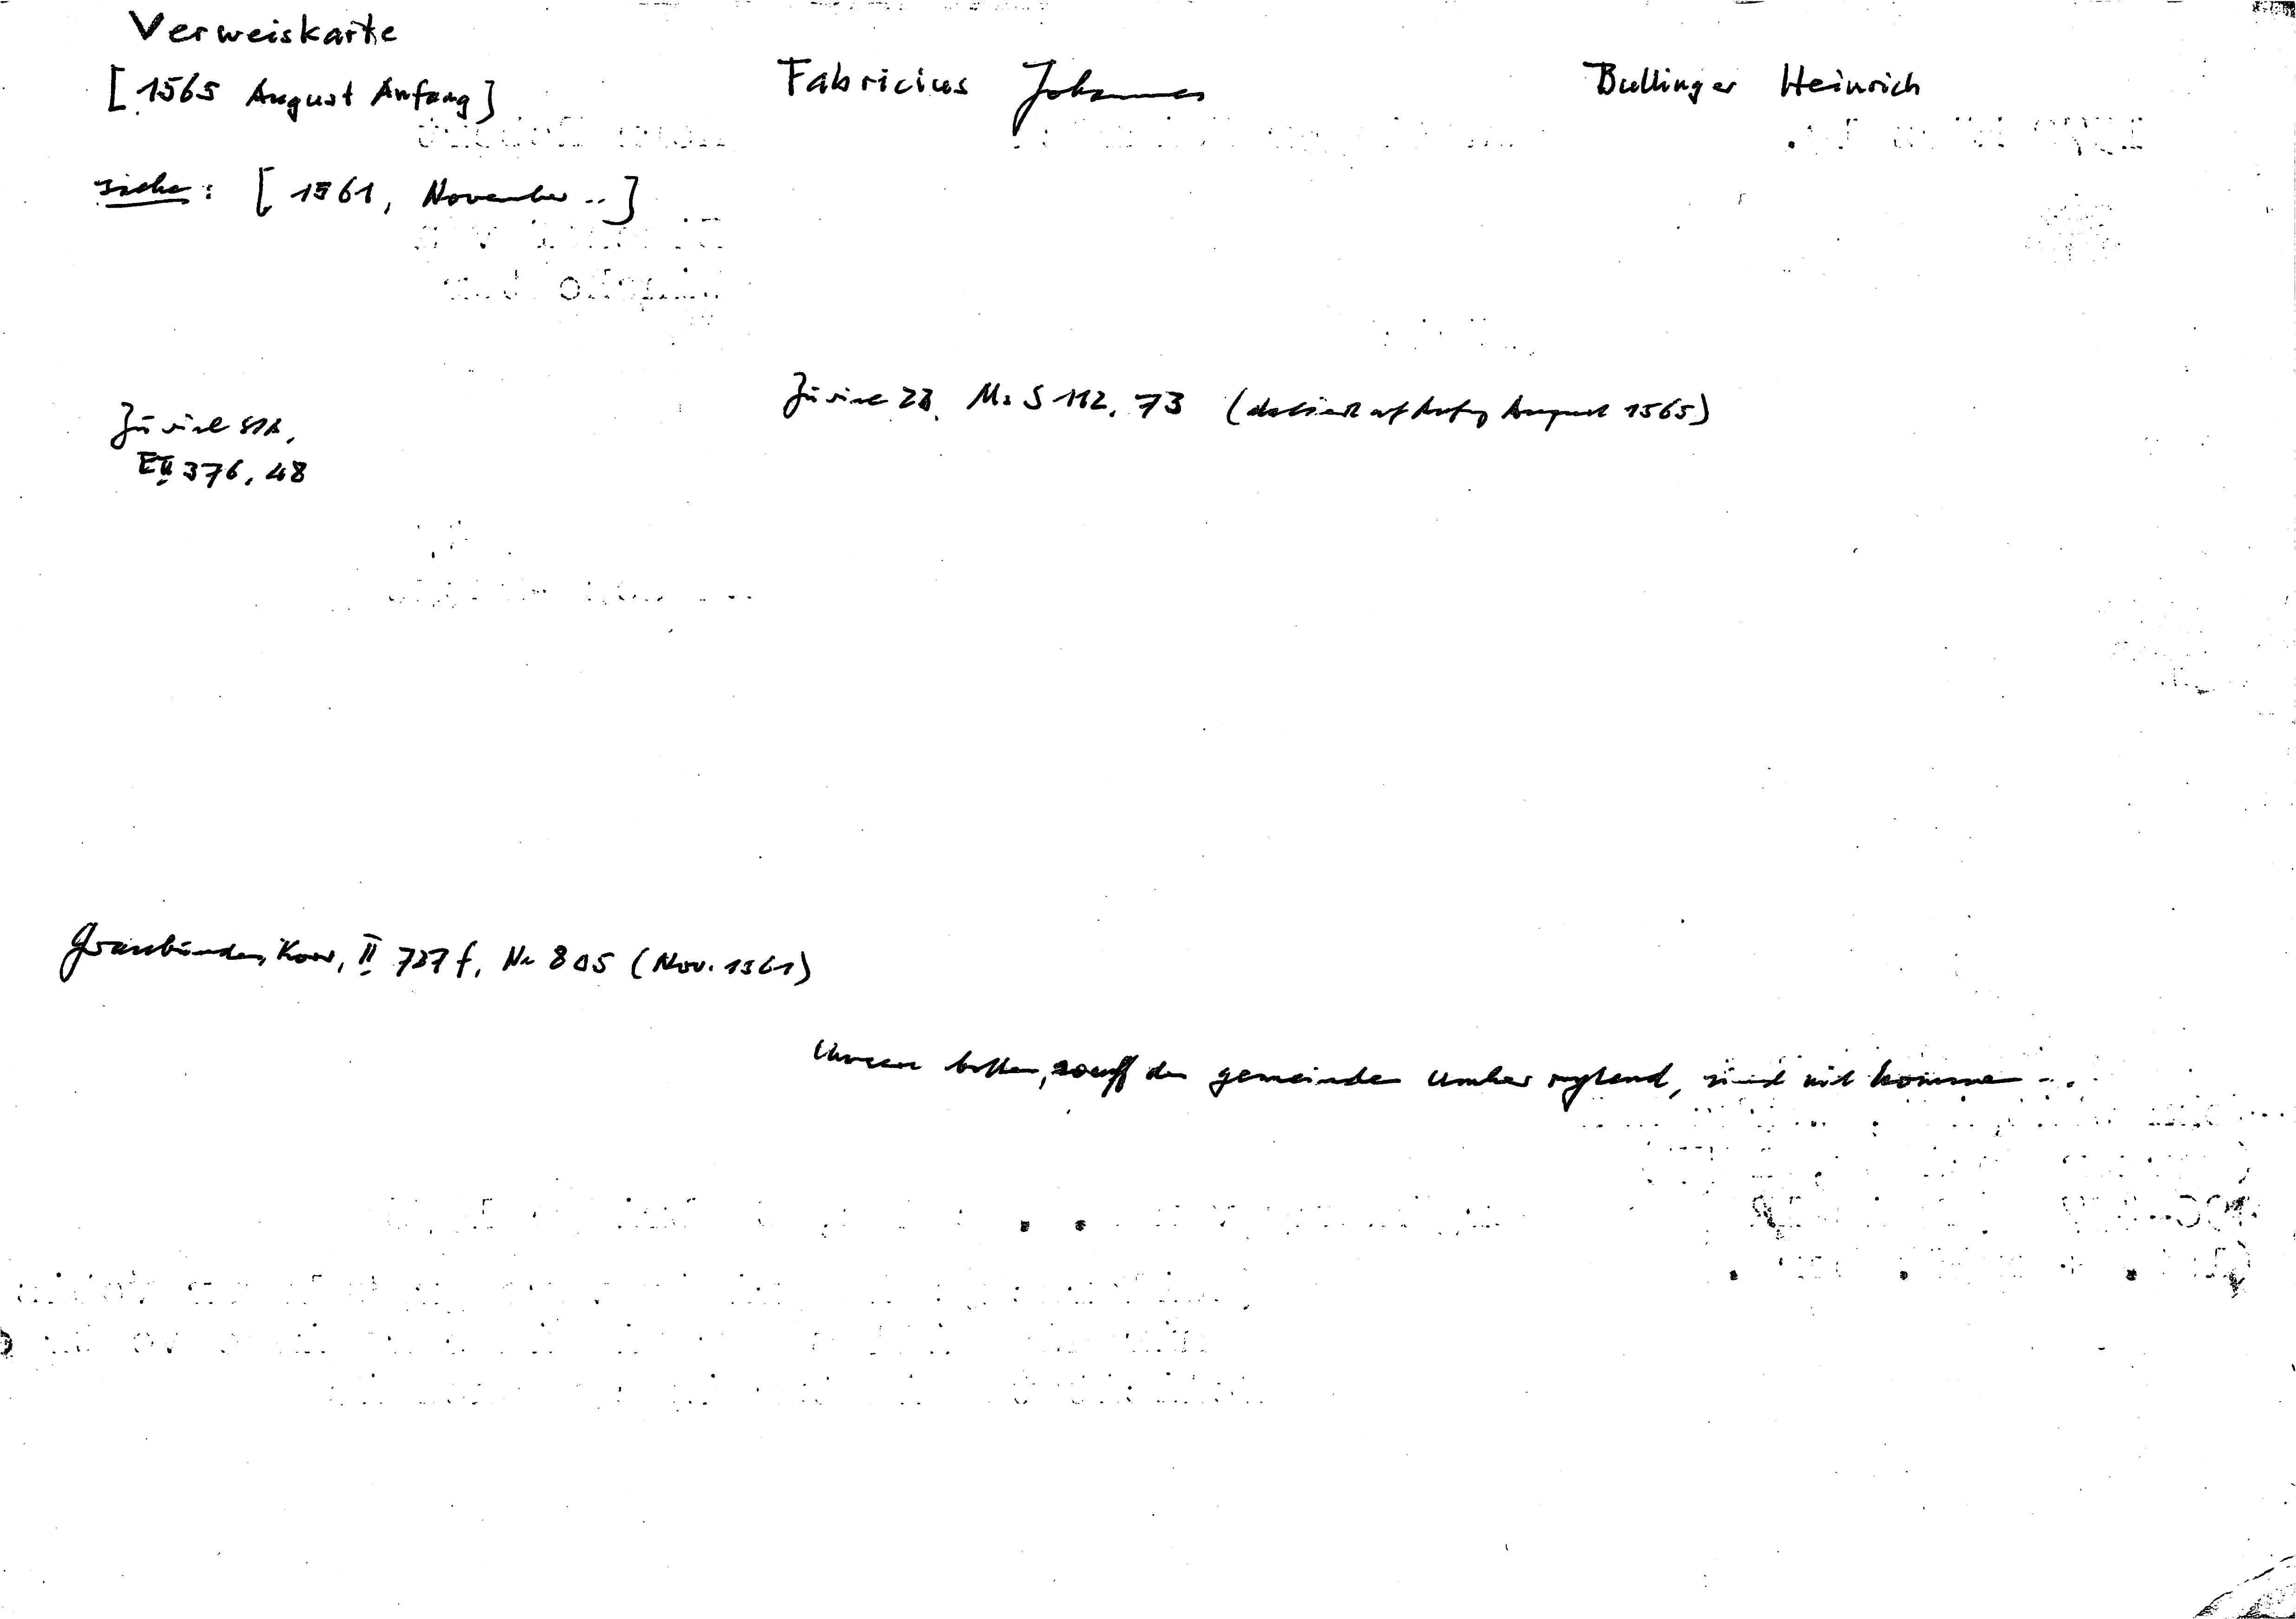 Verweiskarte
[1565 August Anfang]
Fabricius Johannes
Bullinger Heinrich
siehe: [1561, November ..]
Zürich ZB, Ms S 112, 73 (datiert auf Anfg August 1565)
Zürich StA,
E II 376, 48
Graubünden, Korr, II 727 f, Nr 805 (Nov. 1561)
Unsere botten, so uff den gemeinden umher rytend, sind nit komme ...